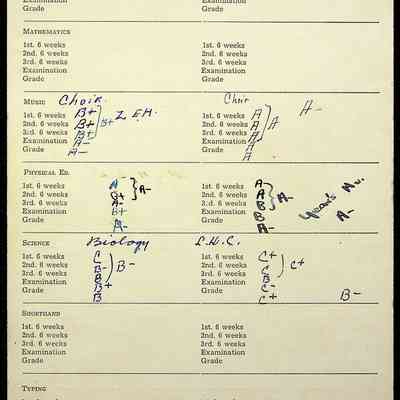 Examination
Grade
MATHEMATICS
1st. 6 weeks 1st. 6 weeks
2nd. 6 weeks 2nd. 6 weeks
3rd. 6 weeks 3rd. 6 weeks
Examination Examination
Grade Grade
MUSIC Choir Choir
1st. 6 weeks B+ 1st. 6 weeks A A-
2nd. 6 weeks B+ B+ 2nd. 6 weeks A A
3rd. 6 weeks B+ 3rd. 6 weeks A
Examination A- Examination A
Grade A- Grade A
PHYSICAL ED.
1st. 6 weeks A- 1st. 6 weeks A
2nd. 6 weeks A- 2nd. 6 weeks A A-
3rd. 6 weeks A- 3rd. 6 weeks B Year's Av.
Examination B+ Examination B A-
Grade A- Grade A-
SCIENCE Biology
1st. 6 weeks C 1st. 6 weeks C+
2nd. 6 weeks B- B- 2nd. 6 weeks C C+
3rd. 6 weeks B 3rd. 6 weeks B
Examination B+ Examination C-
Grade B Grade C+ B-
SHORTHAND
1st. 6 weeks 1st. 6 weeks
2nd. 6 weeks 2nd. 6 weeks
3rd. 6 weeks 3rd. 6 weeks
Examination Examination
Grade Grade
TYPING